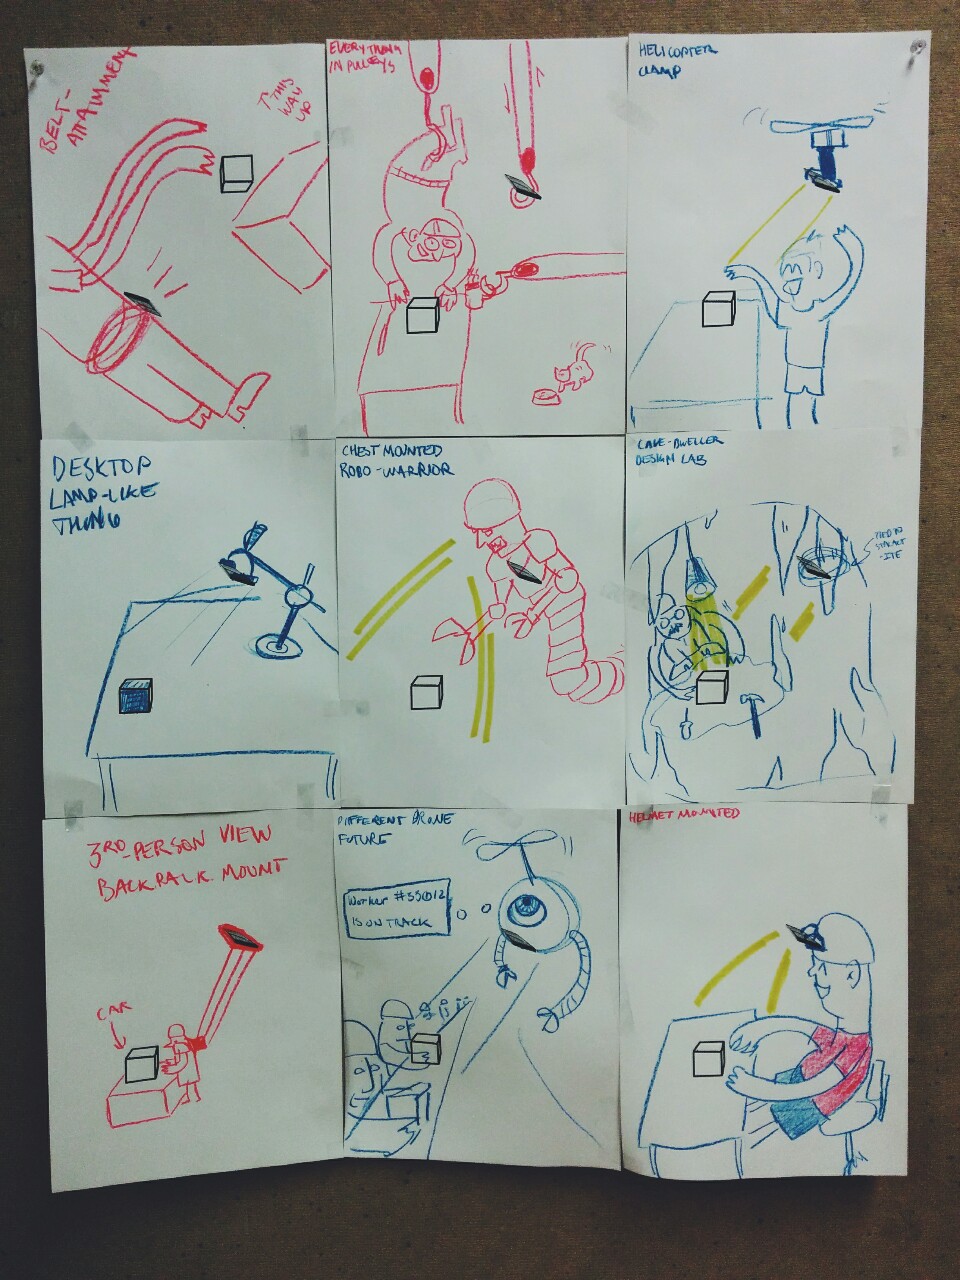 BELT-
ATTATNMENT
↑ THIS
WAY
UP
EVERYTHING
IN PULLEYS
HELICOPTER
CLAMP
DESKTOP
LAMP-LIKE
THING
CHEST MOUNTED
ROBO-WARRIOR
CAVE-DWELLER
DESIGN LAB
TIED TO
STALACT
-ITE
3RD-PERSON VIEW
BACKPACK MOUNT
CAR
DIFFERENT DRONE
FUTURE
Worker #55012
IS ON TRACK
HELMET MOUNTED